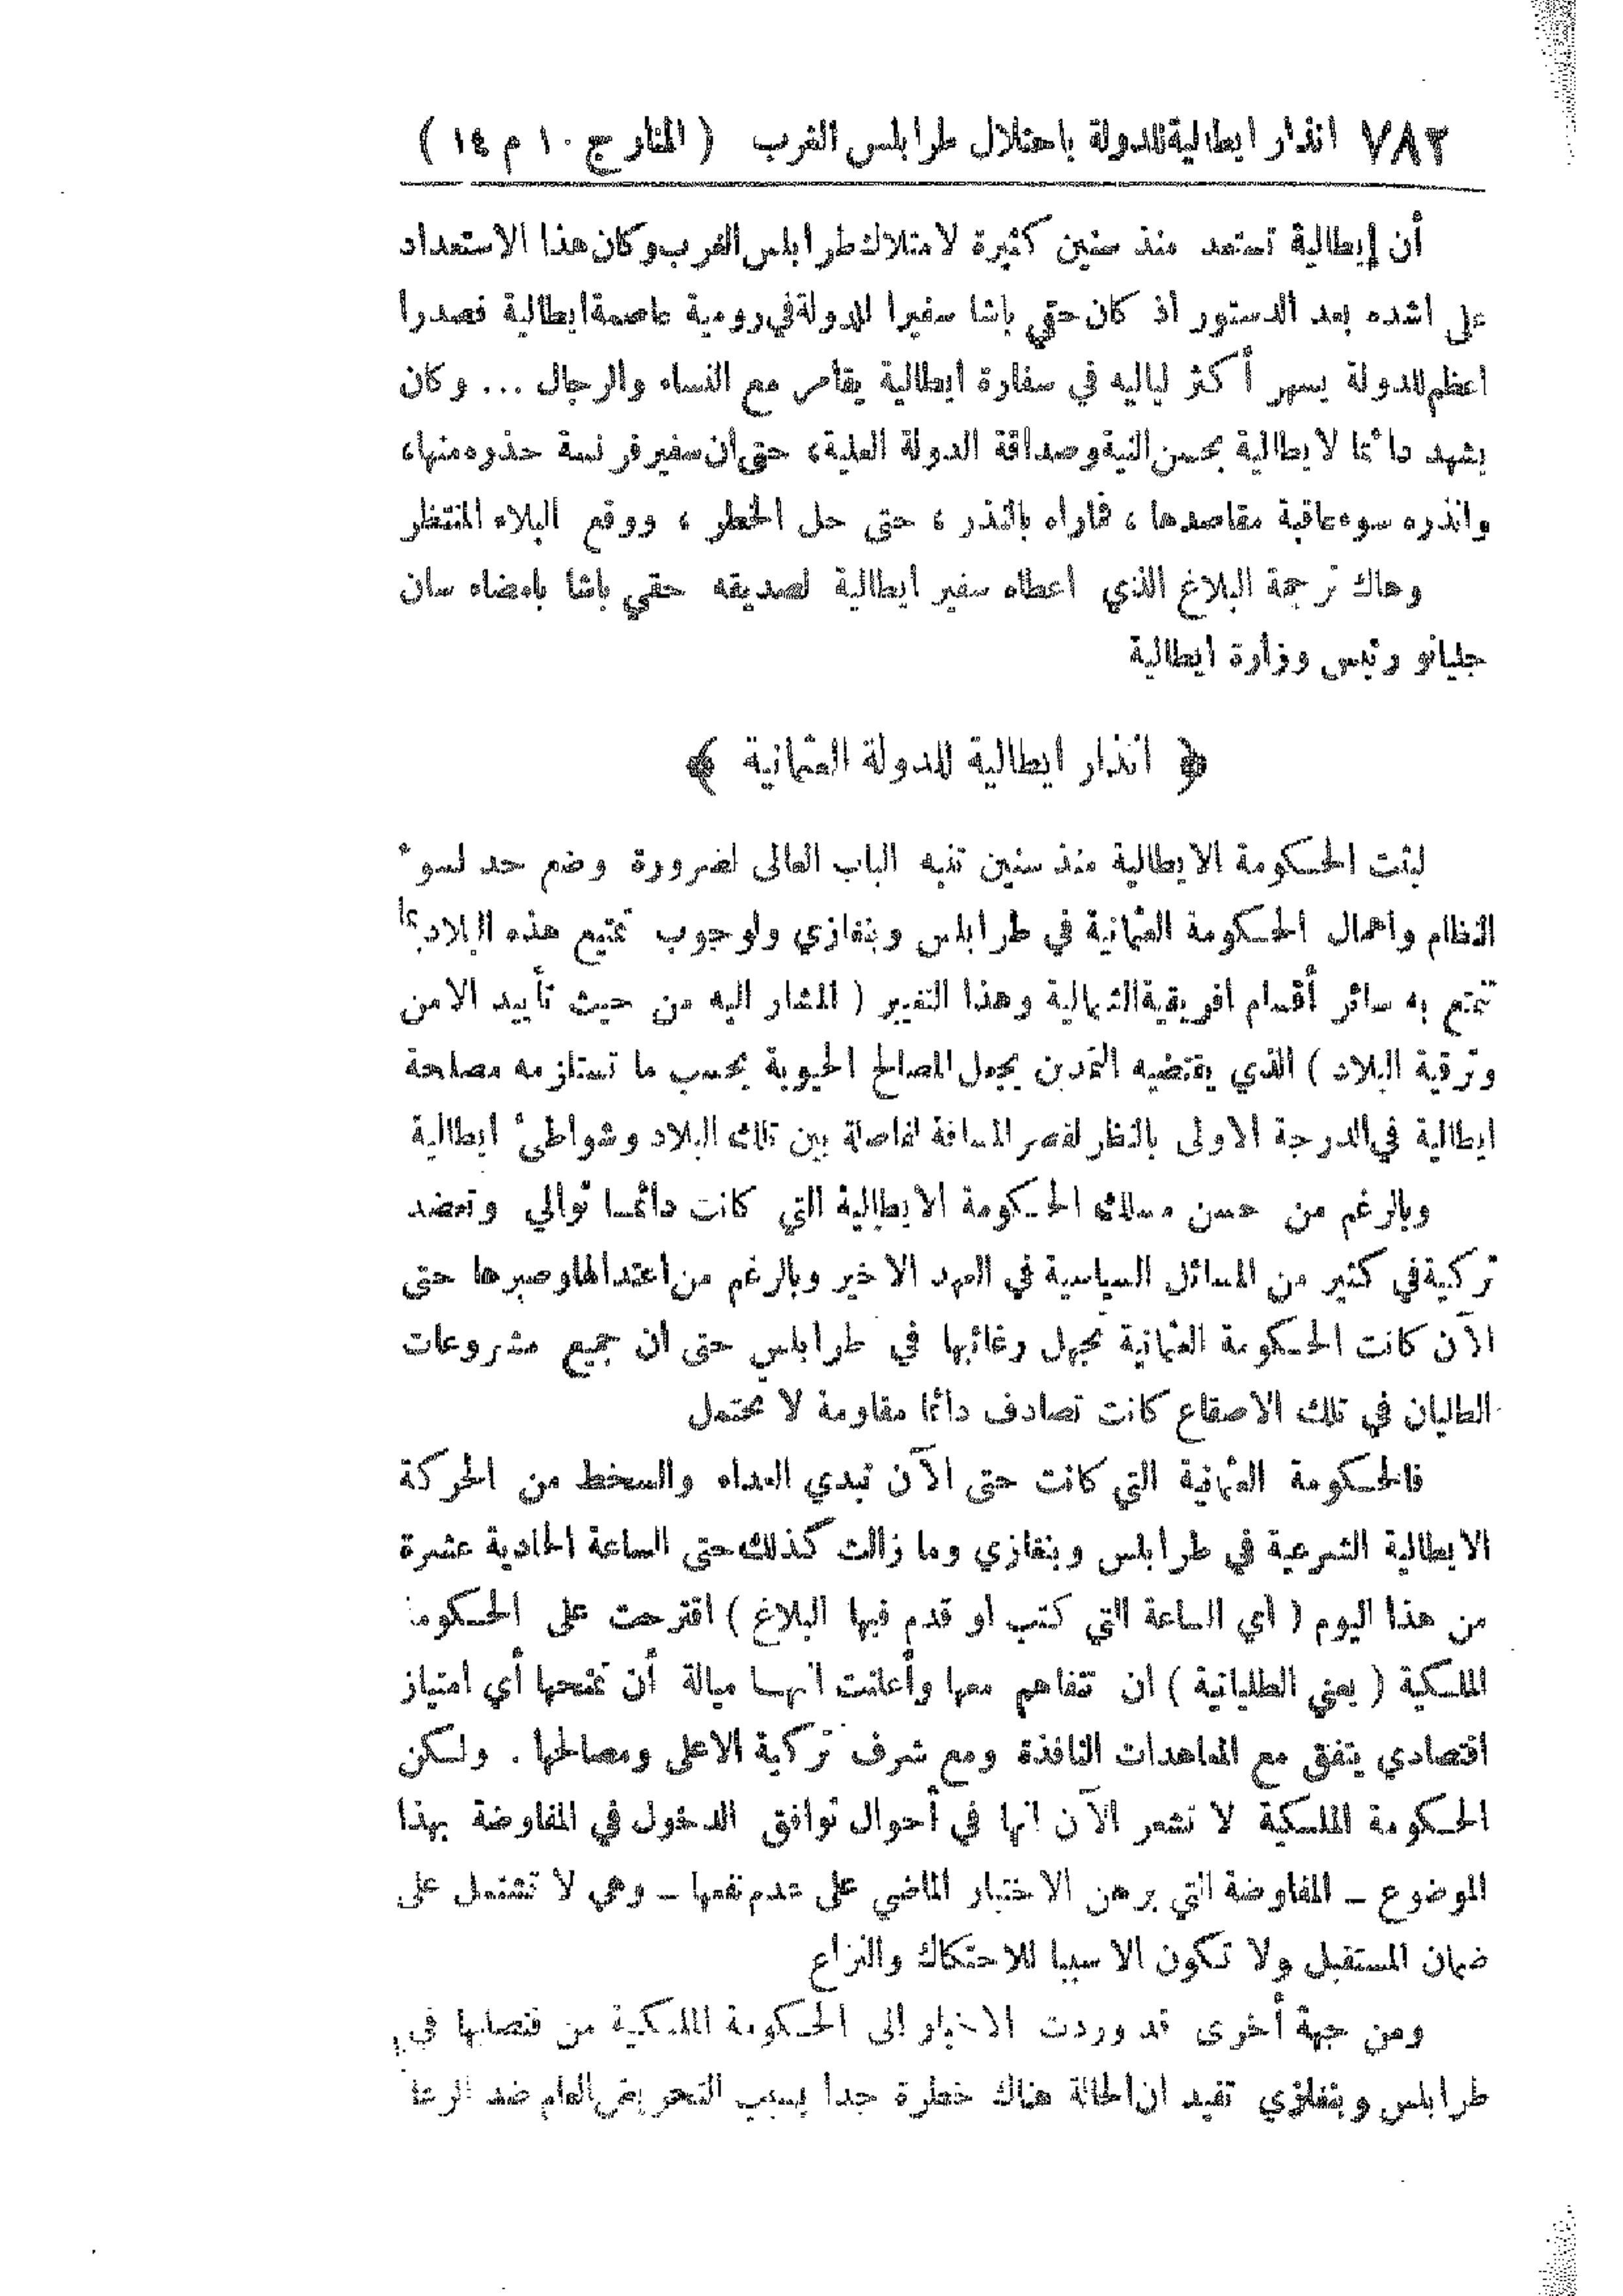 ٧٨٢ انذار ايطالية للدولة باحتلال طرابلس الغرب ( المنار ج ١٠ م ١٤ )
أن إيطالية تستعد منذ سنين كثيرة لامتلاك طرابلس الغرب وكان هذا الاستعداد
على اشده بعد الدستور اذ كان حقي باشا سفيرا للدولة في رومية عاصمة ايطالية فصدرا
اعظم للدولة يسهر أكثر لياليه في سفارة ايطالية يقامر مع النساء والرجال ... وكان
يشهد دائما لايطالية بحسن النية وصداقة الدولة العلية، حتى أن سفير فرنسة حذره منها،
وانذره سوء عاقبة مقاصدها، فماراه بالنذر، حتى حل الخطر، ووقع البلاء المنتظر
وهاك ترجمة البلاغ الذي اعطاه سفير ايطالية لصديقه حقي باشا بامضاء سان
جليانو رئيس وزارة ايطالية
﴿ انذار ايطالية للدولة العثمانية ﴾
لبثت الحكومة الايطالية منذ سنين تنبه الباب العالى لضرورة وضع حد لسوء
النظام واهمال الحكومة العثمانية في طرابلس وبنغازي ولوجوب تمتيع هذه البلاد بما
تتمتع به سائر أقسام افريقية الشمالية وهذا التغيير ( المشار اليه من حيث تأييد الامن
وترقية البلاد ) الذي يقتضيه التمدن يجعل المصالح الحيوية بحسب ما تستلزمه مصلحة
ايطالية في الدرجة الاولى بالنظر لقصر المسافة الفاصلة بين تلك البلاد وشواطئ ايطالية
وبالرغم من حسن مسلك الحكومة الايطالية التي كانت دائما توالي وتعضد
تركية في كثير من المسائل السياسية في العهد الاخير وبالرغم من اعتدالها وصبرها حتى
الآن كانت الحكومة العثمانية تجهل رغائبها في طرابلس حتى ان جميع مشروعات
الطليان في تلك الاصقاع كانت تصادف دائما مقاومة لا تحتمل
فالحكومة العثمانية التي كانت حتى الآن تبدي العداء والسخط من الحركة
الايطالية الشرعية في طرابلس وبنغازي وما زالت كذلك حتى الساعة الحادية عشرة
من هذا اليوم ( أي الساعة التي كتب او قدم فيها البلاغ ) اقترحت على الحكومة
الملكية ( يعني الطليانية ) ان تتفاهم معها وأعلنت انهـا ميالة أن تمنحها أي امتياز
اقتصادي يتفق مع المعاهدات النافذة ومع شرف تركية الاعلى ومصالحها . ولكن
الحكومة الملكية لا تشعر الآن انها في أحوال توافق الدخول في المفاوضة بهذا
الموضوع ــ المفاوضة التي برهن الاختبار الماضي على عدم نفعها ــ وهي لا تشتمل على
ضمان المستقبل ولا تكون الا سببا للاحتكاك والنزاع
ومن جهة أخرى قد وردت الاخبار الى الحكومة الملكية من قنصلها في
طرابلس وبنغازي تفيد ان الحالة هناك خطرة جدا بسبب التحريض العام ضد الرعايا